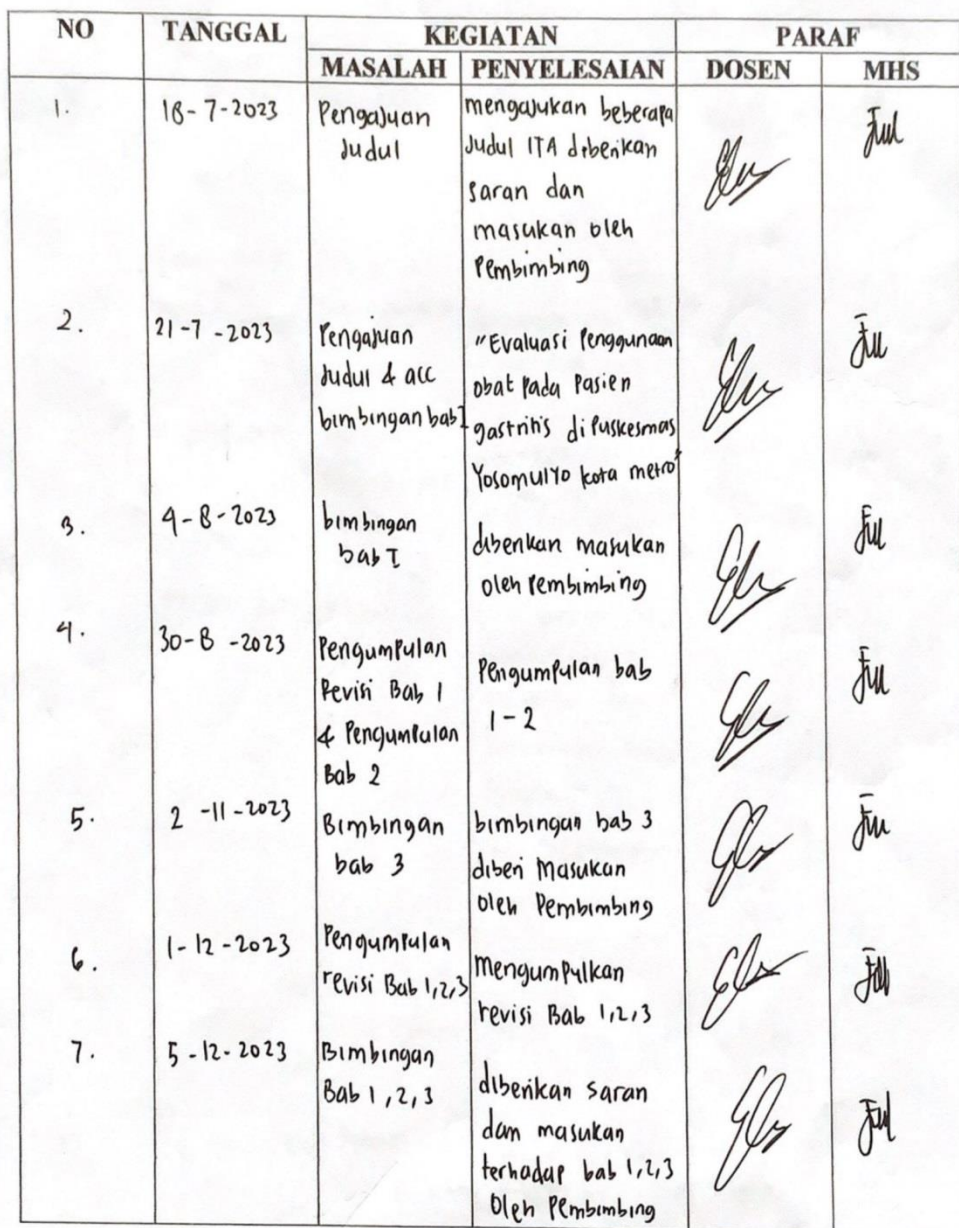 NO TANGGAL KEGIATAN PARAF
MASALAH PENYELESAIAN DOSEN MHS
1. 18-7-2023 Pengajuan Judul
mengajukan beberapa
Judul ITA diberikan
saran dan
masukan oleh
Pembimbing
2. 21-7-2023 Pengajuan
Judul & acc
bimbingan bab I
"Evaluasi Penggunaan
obat pada Pasien
gastritis di Puskesmas
Yosomulyo kota metro"
3. 4-8-2023 bimbingan
bab I
diberikan masukan
oleh Pembimbing
4. 30-8-2023 Pengumpulan
Revisi Bab 1
& Pengumpulan
Bab 2
Pengumpulan bab
1-2
5. 2-11-2023 Bimbingan
bab 3
bimbingan bab 3
diberi Masukan
oleh Pembimbing
6. 1-12-2023 Pengumpulan
revisi Bab 1,2,3
Mengumpulkan
revisi Bab 1,2,3
7. 5-12-2023 Bimbingan
Bab 1,2,3
diberikan saran
dan masukan
terhadap bab 1,2,3
Oleh Pembimbing